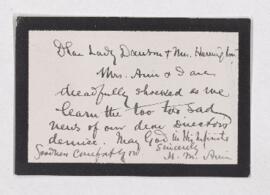 Dear Lady Dawson & Mrs. Harrington
Mrs. Ann & I are
dreadfully shocked as we
learn the too too sad
news of our dear Directors
demise. May God in His Infinite
Goodness Comfort you
Sincerely